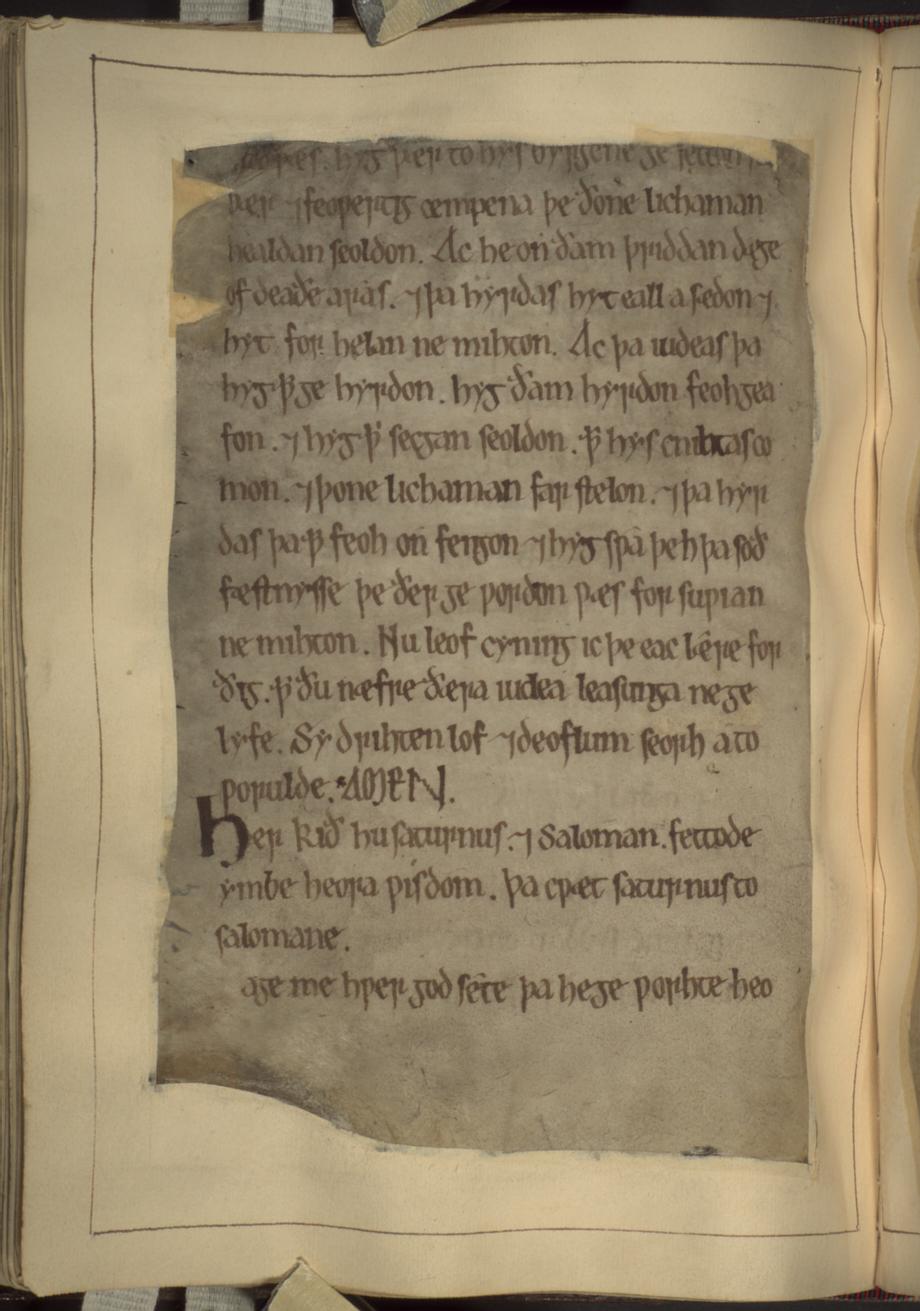 hyg þær to hys byrgene ge setton
ƿær ⁊ feoƿertig cempena þe ðone lichaman
healdan seoldon. Ac he on ðam þriddan dæge
of deaðe aras. ⁊ þa hyrdas hyt eall asædon ⁊
hyt for helan ne mihton. Ac þa iudeas þa
hyg ꝥ ge hyrdon. hyg ðam hyrdon feoh gea
fon. ⁊ hyg ꝥ secgan seoldon. ꝥ hys cnihtas co
mon. ⁊ þone lichaman for stelon. ⁊ þa hyr
das þa ꝥ feoh on fengon ⁊ hyg sƿa þeh þa soð
fæstnysse þe ðer ge ƿordon ƿæs for suƿian
ne mihton. Nu leof cyning ic þe eac lære for
ðig. ꝥ ðu næfre ðæra iudea leasunga ne ge
lyfe. Sy drihten lof ⁊ deoflum seorh a to
ƿorulde. AMEN.
Her kið hu saturnus. ⁊ Saloman. fettode
ymbe heora ƿisdom. Þa cƿæt saturnus to
salomane.
age me hƿer god sete þa he ge ƿorhte heo